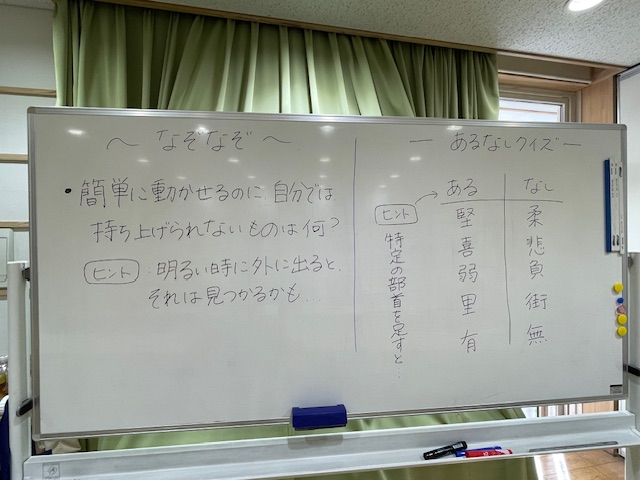 ～ なぞなぞ ～
・簡単に動かせるのに、自分では
持ち上げられないものは何?
ヒント:明るい時に外に出ると、
それは見つかるかも…
ー あるなしクイズ ー
ある なし
堅 柔
喜 悲
弱 負
里 街
有 無
ヒント
特定の部首を足すと…